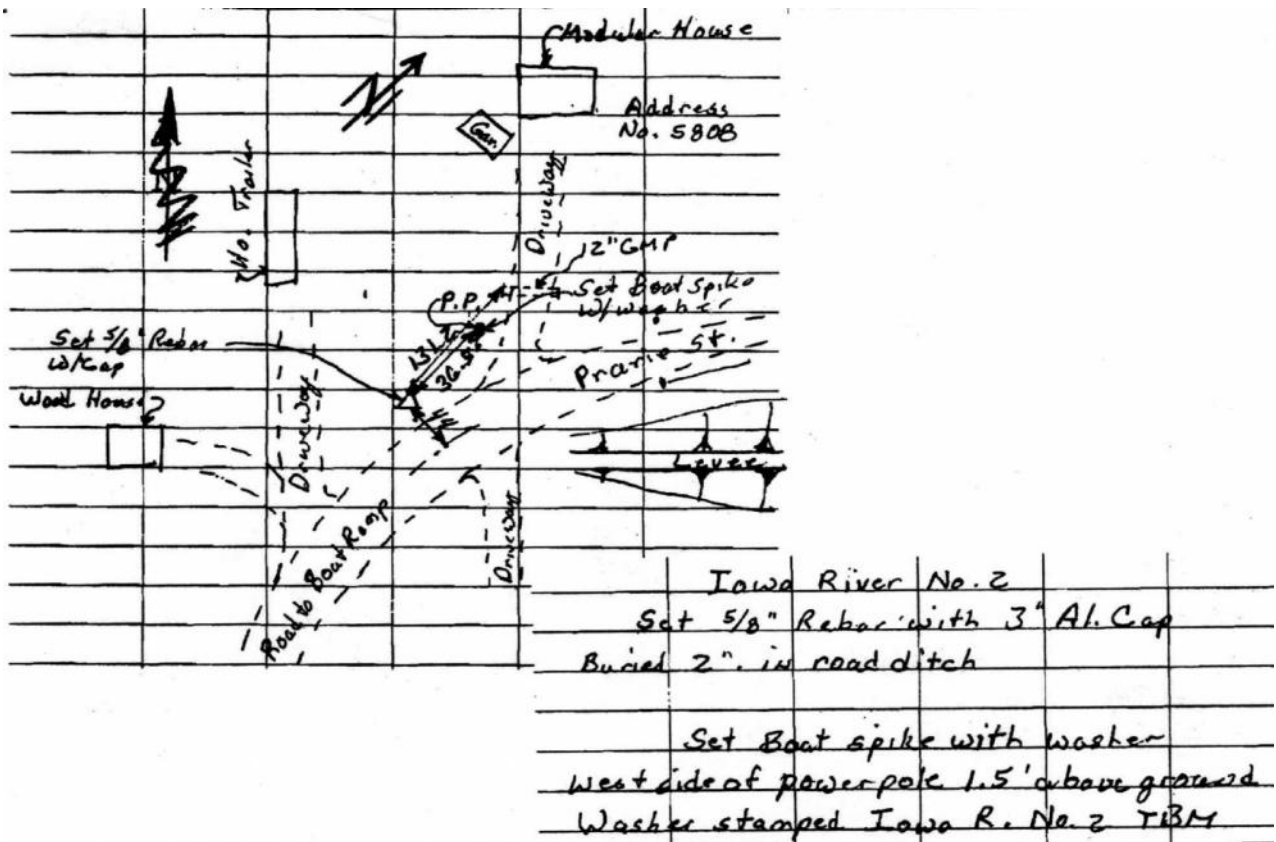 Modular House
Address
No. 5808
Gar.
N
Ho. Trailer
Driveway
12" CMP
P.P.
Set Boat Spike
w/washer
131.2
36.8
Set 5/8" Rebar
w/Cap
Prarie St.
Wood House
Driveway
Levee
Driveway
Road to Boat Ramp
Iowa River No. 2
Set 5/8" Rebar with 3" Al. Cap
Buried 2". in road ditch
Set Boat spike with washer
West side of powerpole 1.5' above ground
Washer stamped Iowa R. No. 2 TBM